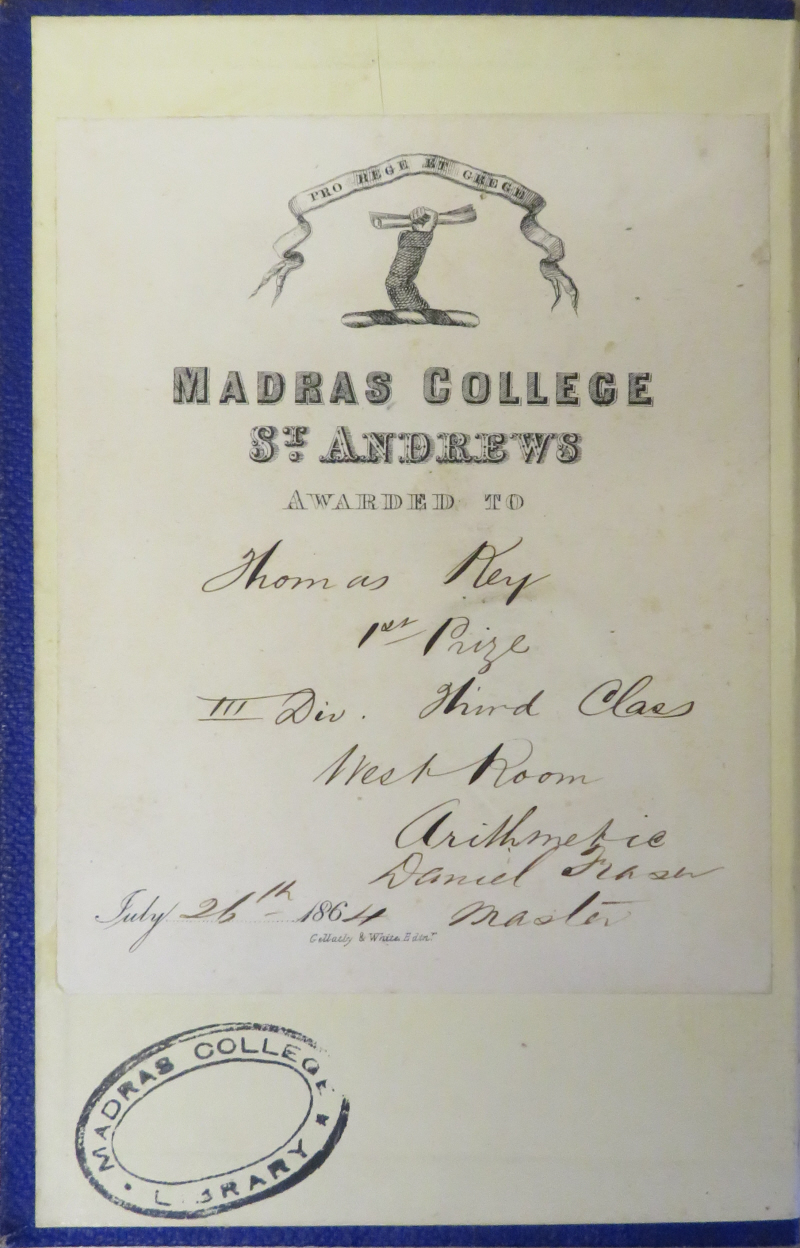 PRO REGE ET GREGE
MADRAS COLLEGE
ST. ANDREWS
AWARDED TO
Thomas Key
1st Prize
III Div. Third Class
West Room
Arithmetic
Daniel Fraser
July 26th 1864 Master
Gellatly & White Edinr.
MADRAS COLLEGE
LIBRARY